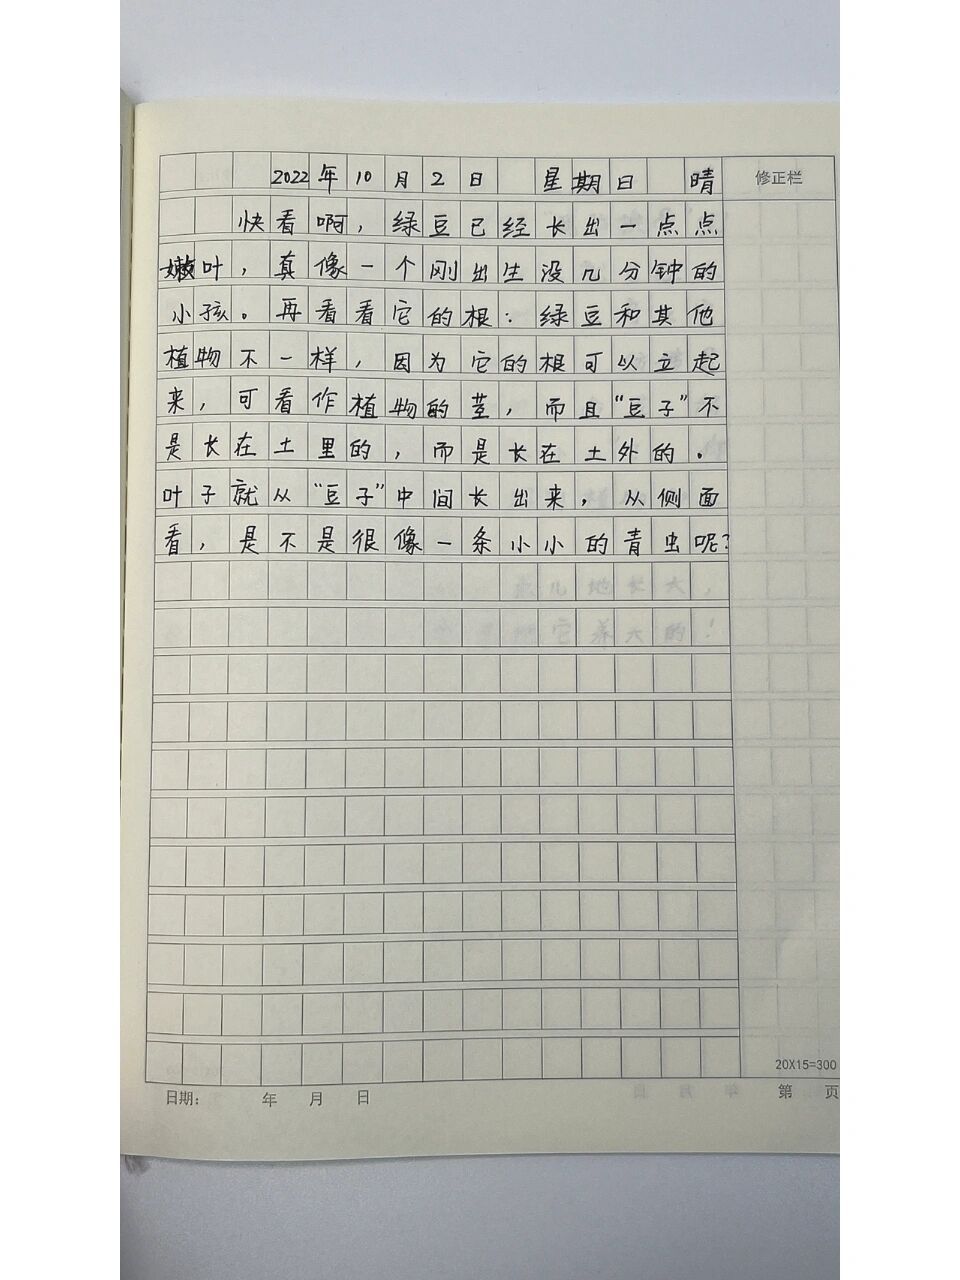 2022年10月2日 星期日 晴
修正栏
快看啊，绿豆已经长出一点点
嫩叶，真像一个刚出生没几分钟的
小孩。再看看它的根：绿豆和其他
植物不一样，因为它的根可以立起
来，可看作植物的茎，而且“豆子”不
是长在土里的，而是长在土外的。
叶子就从“豆子”中间长出来，从侧面
看，是不是很像一条小小的青虫呢？
20X15=300
日期： 年 月 日 第 页